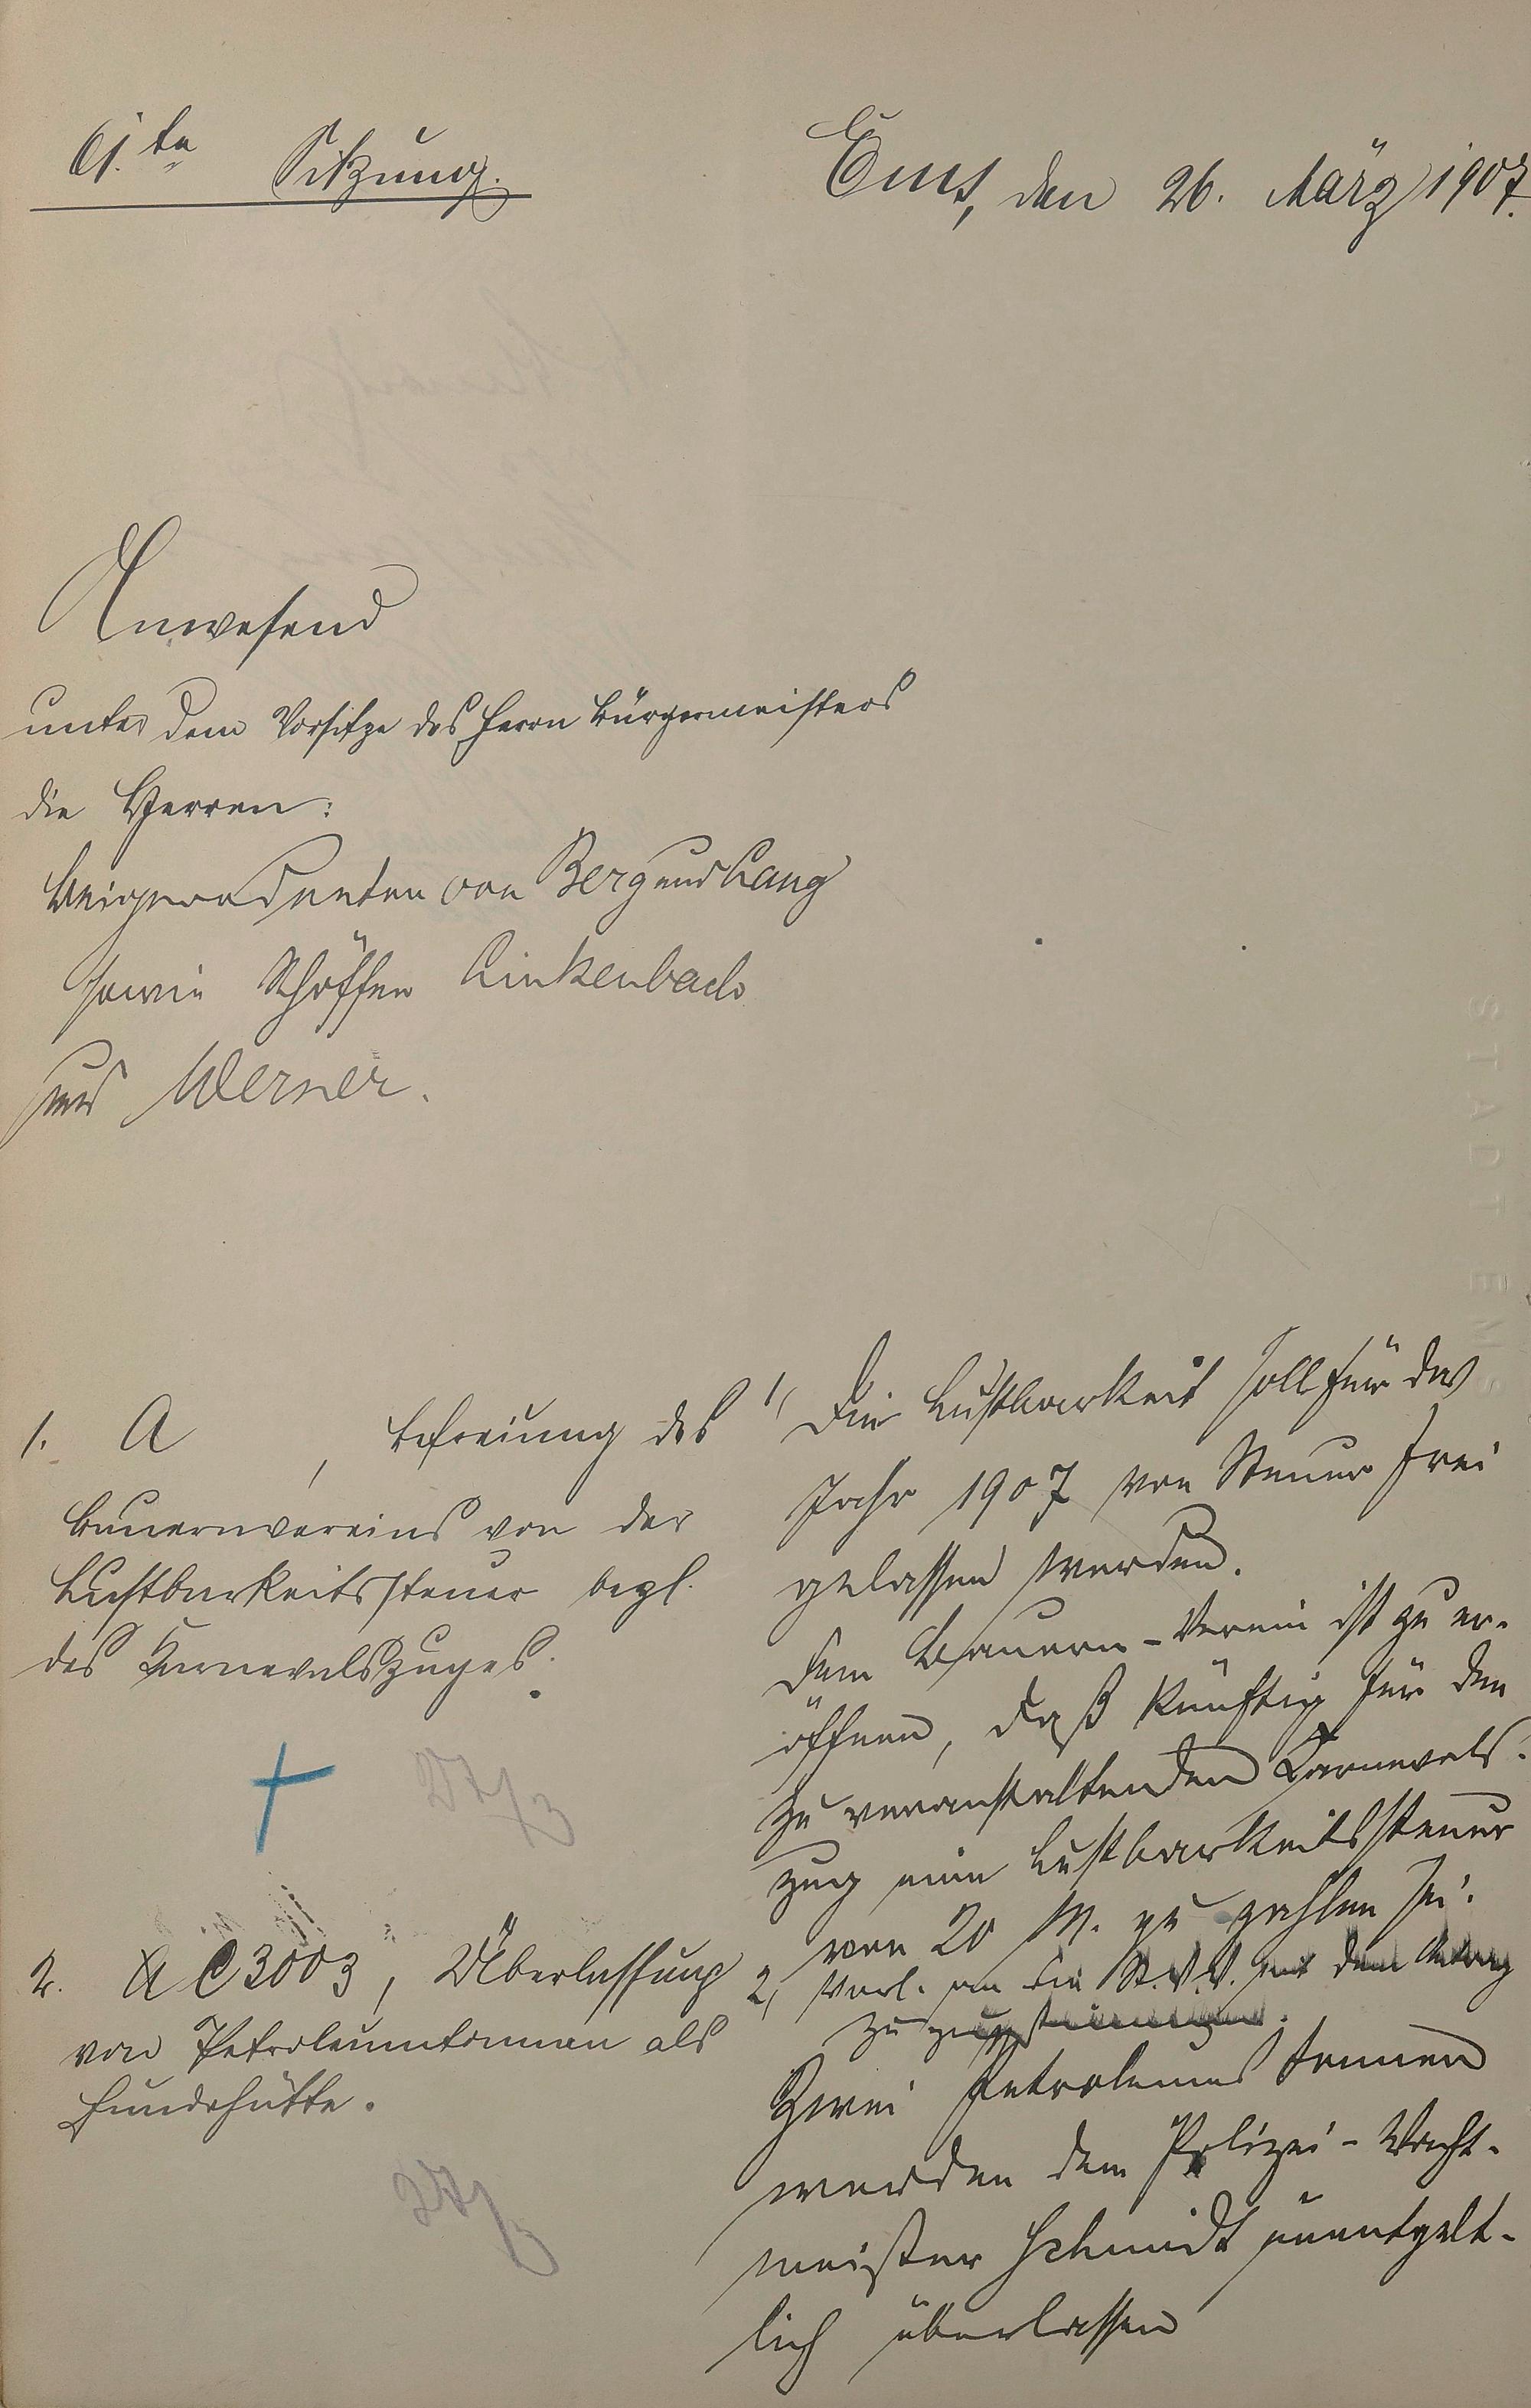 61.te Sitzung.
Ems, den 26. März 1907.
Anwesend
unter dem Vorsitze des Herrn Bürgermeisters
die Herren:
Beigeordneten von Berg und Lang
sowie Schöffen Linkenbach
und Werner.
1. A , Befreiung des
Bauernvereins von der
Lustbarkeitssteuer bezl.
des Karnevalszuges.
27/3
2. A C 3003, Überlassung
von Petroleumtonnen als
Hundehütte.
27/3
1, Die Lustbarkeit soll für das
Jahr 1907 von Steuer frei
gelassen werden.
Dem Bauern-Verein ist zu er-
öffnen, daß künftig für den
zu veranstaltenden Karnevals-
zug eine Lustbarkeitssteuer
von 20 M. zu zahlen sei.
2, Vorl. an die St.V.V. mit dem Antrag
zuzustimmen.
Zwei Petroleums tonnen
werden dem Polizei-Wacht-
meister Schmidt unentgelt-
lich überlassen
STADT EMS